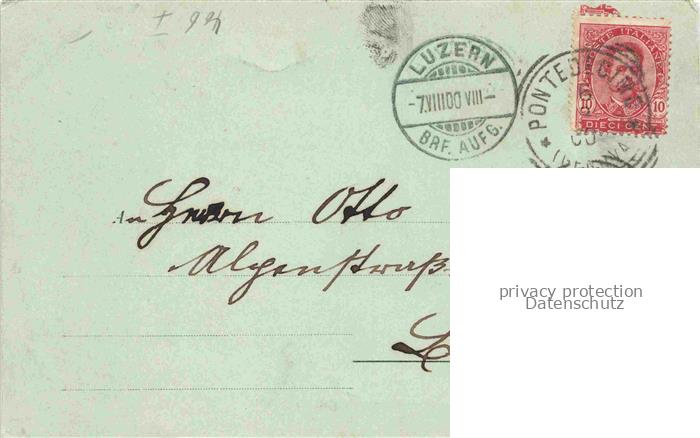 ± 99
LUZERN
-7.VIII00 VIII-
BRF. AUFG.
POSTE ITALIANE
10 10
DIECI
An Herrn Otto
Alpenstraß
L
privacy protection
Datenschutz